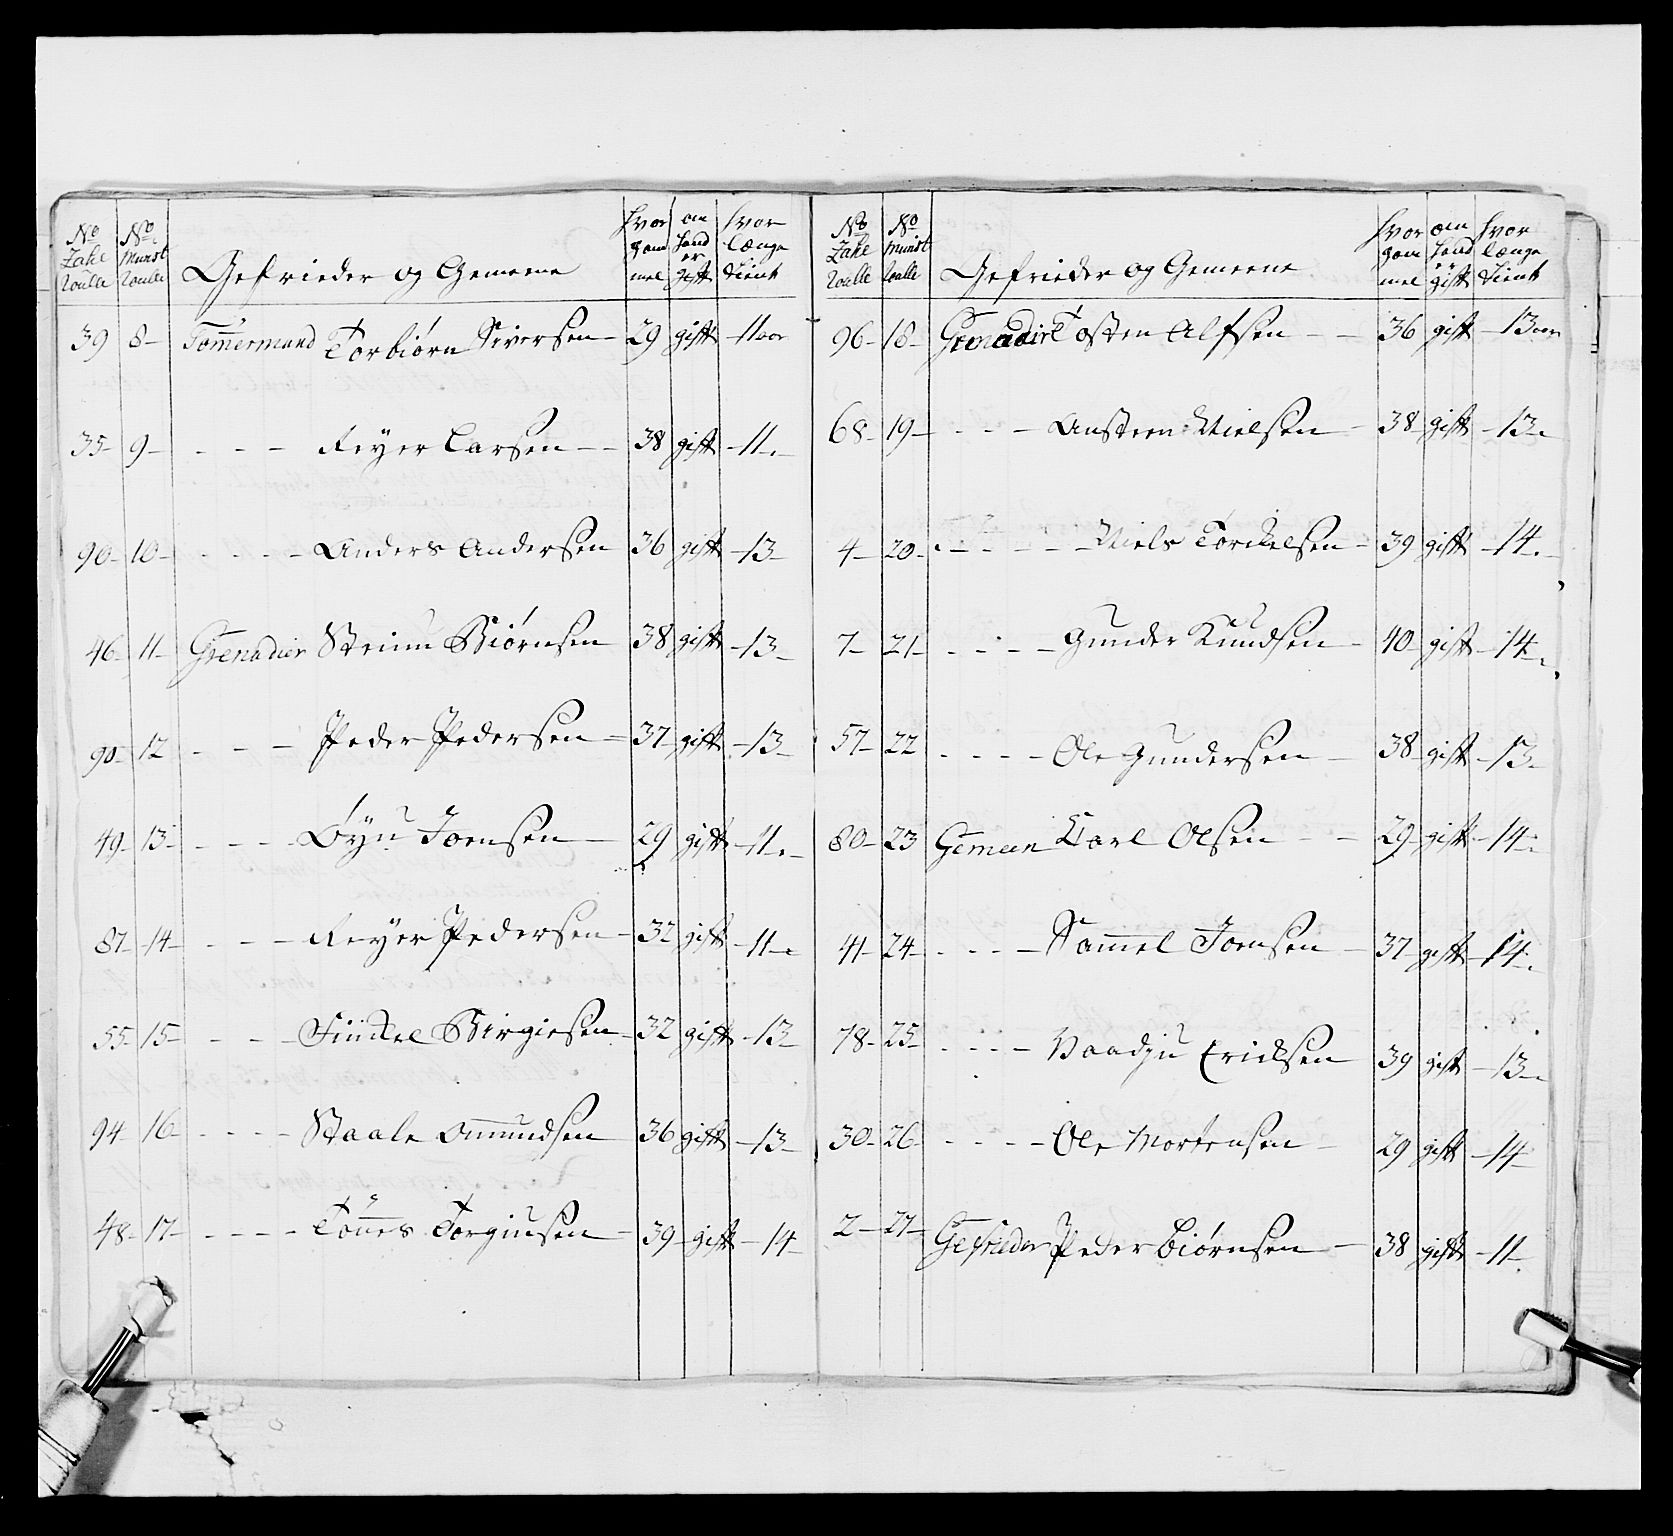 No Zahl Roulle | No Munst Roulle | Gefrieder og Gemeene | Hvor gam mel | om hand er gift | hvor længe dient
39 8 Tømermand Torbiørn Siversen 29 gift 11 aar
35 9 - - - Reyer Larsen 38 gift 11
90 10 - - - Anders Andersen 36 gift 13
46 11 Grenadier Steinu Biørnsen 38 gift 13
90 12 - - - Peder Pedersen 37 gift 13
49 13 - - - Øyu Joensen 29 gift 11
87 14 - - - Reyer Pedersen 32 gift 11
55 15 - - - Finckel Birgiesen 32 gift 13
94 16 - - - Staale Omundsen 36 gift 13
48 17 - - - Tønes Torgiusen 39 gift 14
No Zahl Roulle | No Munst Roulle | Gefrieder og Gemeene | Hvor gam mel | om hand er gift | hvor længe dient
96 18 Grenadier Tosten Alfsen 36 gift 13 aar
68 19 - - - Austeen Nielsen 38 gift 13
4 20 - - - Niels Torckelsen 39 gift 14
7 21 - - - Gunder Knudsen 40 gift 14
57 22 - - - Ole Gundersen 38 gift 13
80 23 Gemeen Karl Olsen 29 gift 14
41 24 - - - Samel Joensen 37 gift 14
78 25 - - - Vaadju Ericksen 39 gift 13
30 26 - - - Ole Mortensen 29 gift 14
2 27 Gefrieder Peder Biørnsen 38 gift 11